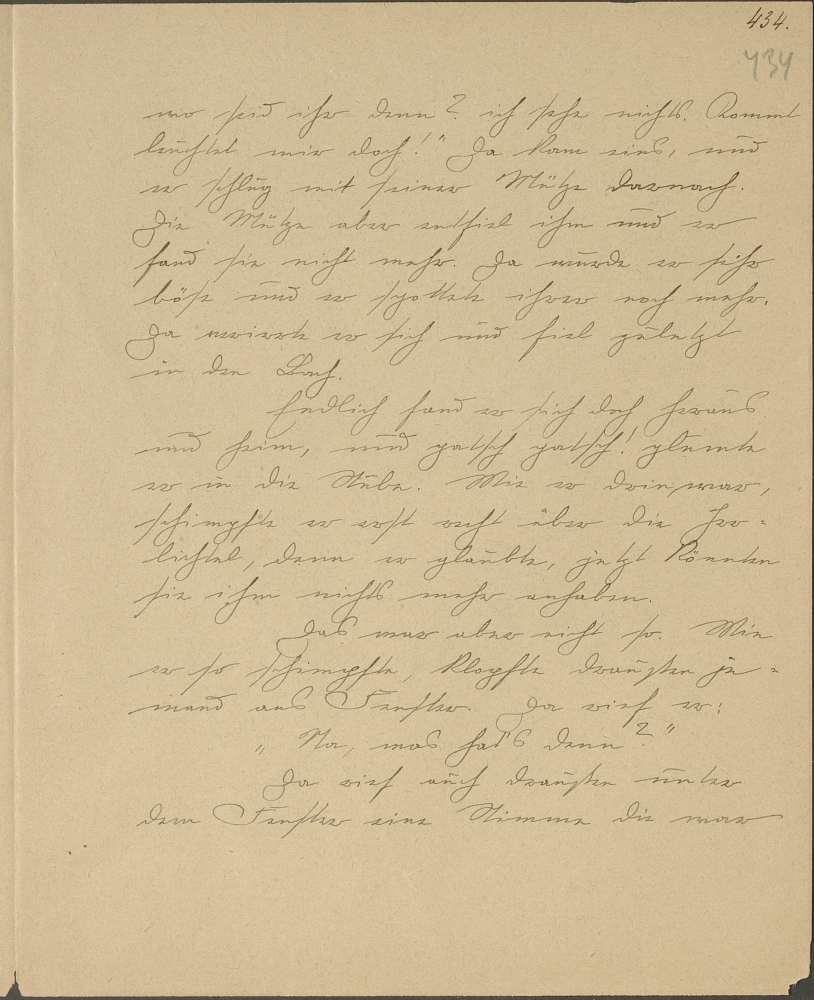 434.
434
wo seid ihr denn? ich sehe nichts. Kommt
leuchtet mir doch!" Da kam eins, und
er schlug mit seiner Mütze darnach.
Die Mütze aber entfiel ihm und er
fand sie nicht mehr. Da wurde er sehr
böse und er spottete ihrer noch mehr.
Da verirrte er sich und fiel zuletzt
in den Bach.
Endlich fand er sich doch heraus
und heim, und patsch patsch!
er in die Stube. Wie er drin war,
schimpfte er erst recht über die Irr-
lichtel, denn er glaubte, jetzt könnten
sie ihm nichts mehr anhaben.
Das war aber nicht so. Wie
er so schimpfte, klopfte draußen je-
mand ans Fenster. Da rief er:
„Na, was hat's denn?"
Da rief auch draußen unter
dem Fenster eine Stimme die war